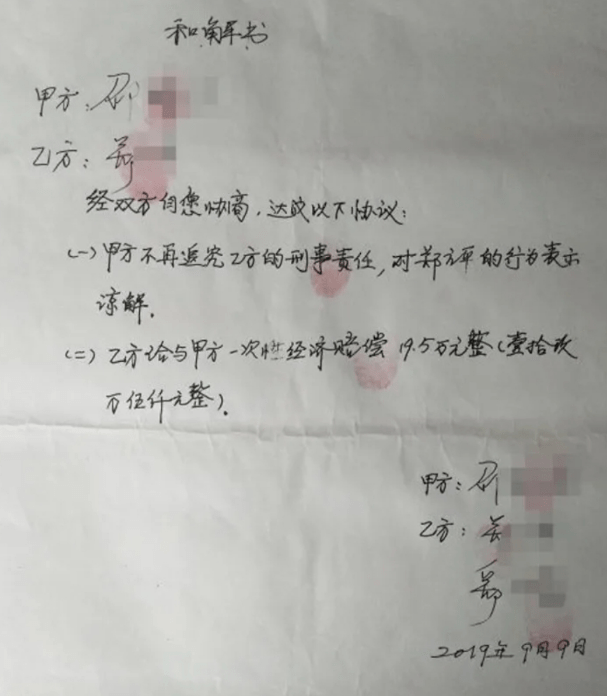 和解书
甲方：邵
乙方：郑
经双方自愿协商，达成以下协议：
(一) 甲方不再追究乙方的刑事责任，对郑方平的行为表示
谅解。
(二) 乙方给与甲方一次性经济赔偿 19.5万元整（壹拾玖
万伍仟元整）。
甲方：邵
乙方：
郑
2019年9月9日